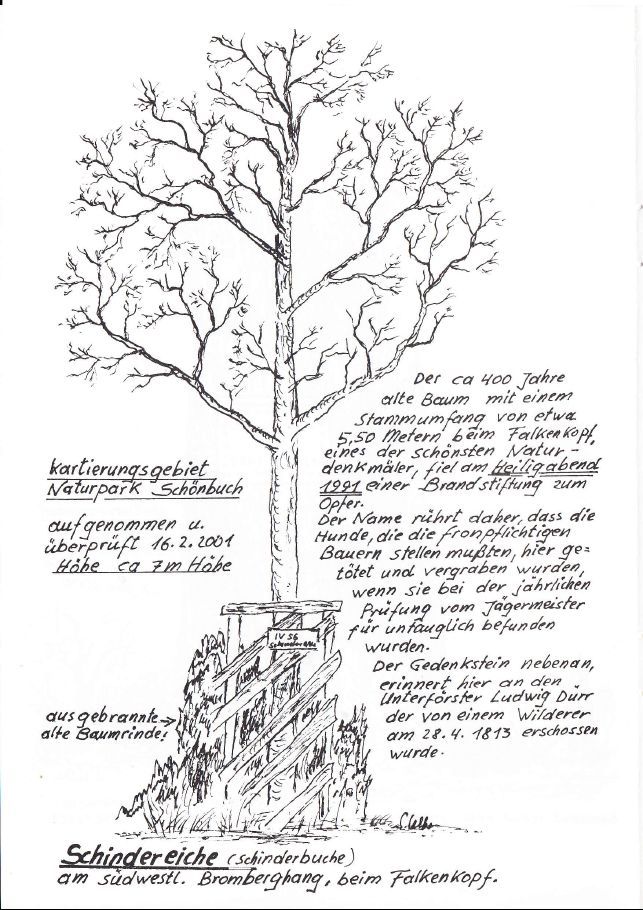 Der ca 400 Jahre
alte Baum mit einem
Stammumfang von etwa
5,50 Metern beim Falkenkopf,
eines der schönsten Natur-
denkmäler, fiel am Heiligabend
1991 einer Brandstiftung zum
Opfer.
Der Name rührt daher, dass die
Hunde, die die fronpflichtigen
Bauern stellen mußten, hier ge=
tötet und vergraben wurden,
wenn sie bei der jährlichen
Prüfung vom Jägermeister
für untauglich befunden
wurden.
Der Gedenkstein nebenan,
erinnert hier an den
Unterförster Ludwig Dürr
der von einem Wilderer
am 28.4. 1813 erschossen
wurde.
Kartierungsgebiet
Naturpark Schönbuch
aufgenommen u.
überprüft 16.2.2001
Höhe ca 7m Höhe
IV 56
ausgebrannte →
alte Baumrinde!
Schindereiche (Schinderbuche)
am südwestl. Bromberghang, beim Falkenkopf.